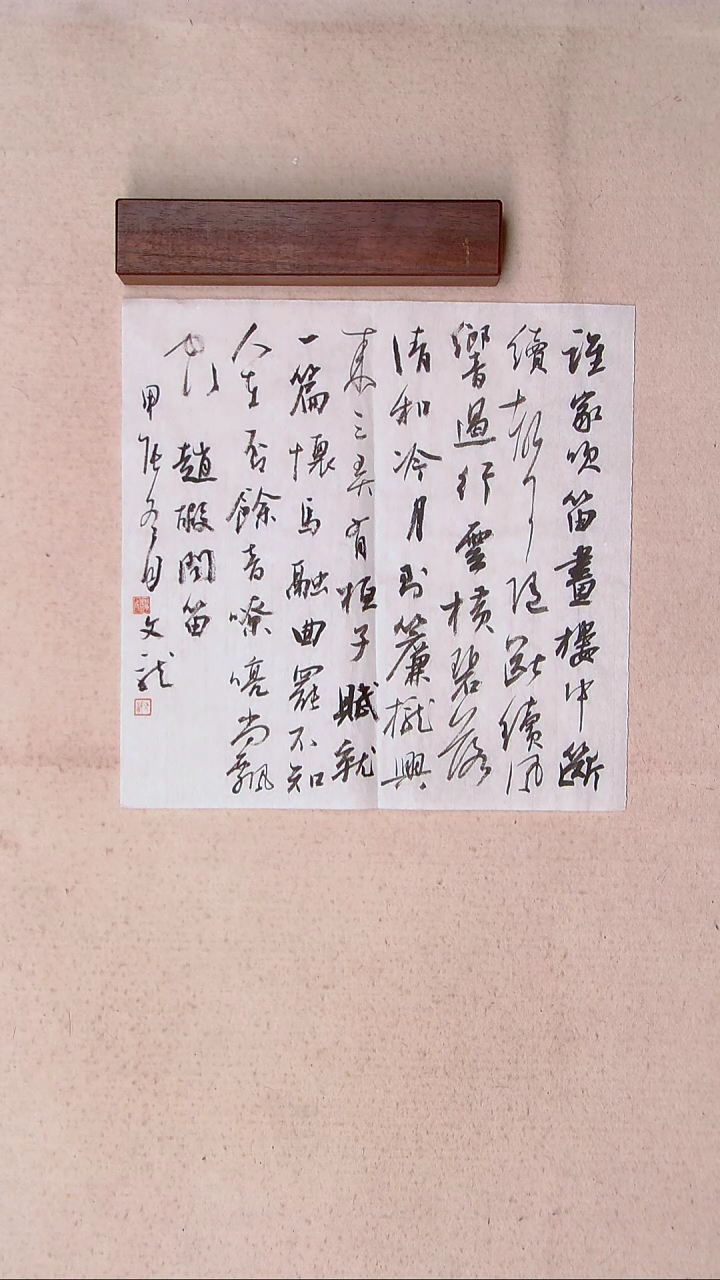 誰家吹笛畫樓中斷
續聲隨斷續風
響遏行雲橫碧落
清和冷月到簾櫳興
來三弄有桓子賦就
一篇懷馬融曲罷不知
人在否餘音嘹喨尚飄
空 趙嘏聞笛
甲辰冬月 文龍